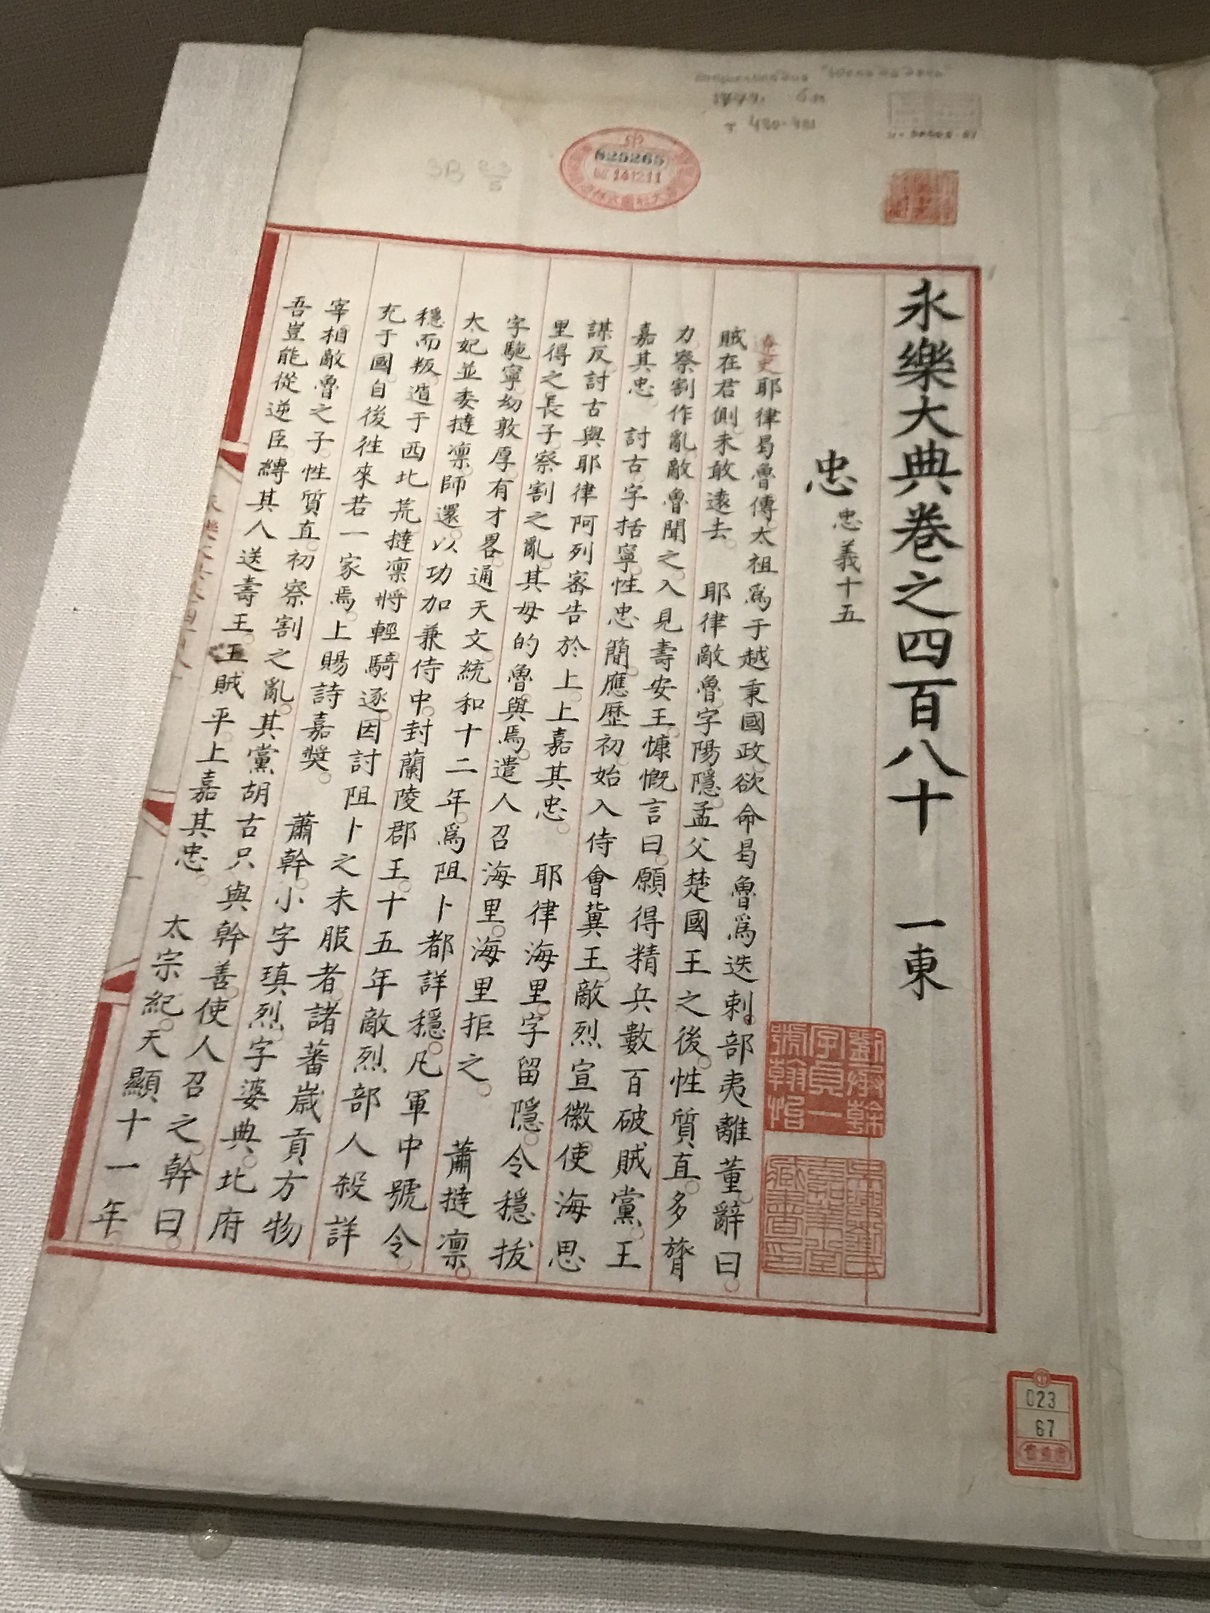 永樂大典卷之四百八十 一東
忠 忠義十五
遼史耶律曷魯傳太祖爲于越秉國政欲命曷魯爲迭剌部夷離菫辭曰
賊在君側未敢遠去 耶律敵魯字陽隱孟父楚國王之後性質直多膂
力察割作亂敵魯聞之入見壽安王慷慨言曰願得精兵數百破賊黨王
嘉其忠 討古字括寧性忠簡應歷初始入侍會冀王敵烈宣徽使海思
謀反討古與耶律阿列密告於上上嘉其忠 耶律海里字留隱令穩拔
里得之長子察割之亂其母的魯與焉遣人召海里海里拒之 蕭撻凜
字馳寧幼敦厚有才畧通天文統和十二年爲阻卜都詳穩凡軍中號令
太妃並委撻凜師還以功加兼侍中封蘭陵郡王十五年敵烈部人殺詳
穩而叛遁于西北荒撻凜將輕騎逐因討阻卜之未服者諸蕃歲貢方物
充于國自後往來若一家焉上賜詩嘉獎 蕭幹小字瑱烈字婆典北府
宰相敵魯之子性質直初察割之亂其黨胡古只與幹善使人召之幹曰
吾豈能從逆臣縛其人送壽王王賊平上嘉其忠 太宗紀天顯十一年
劉承幹
字貞一
號翰怡
吳興劉氏
嘉業堂
藏書印
625265
141211
023
67